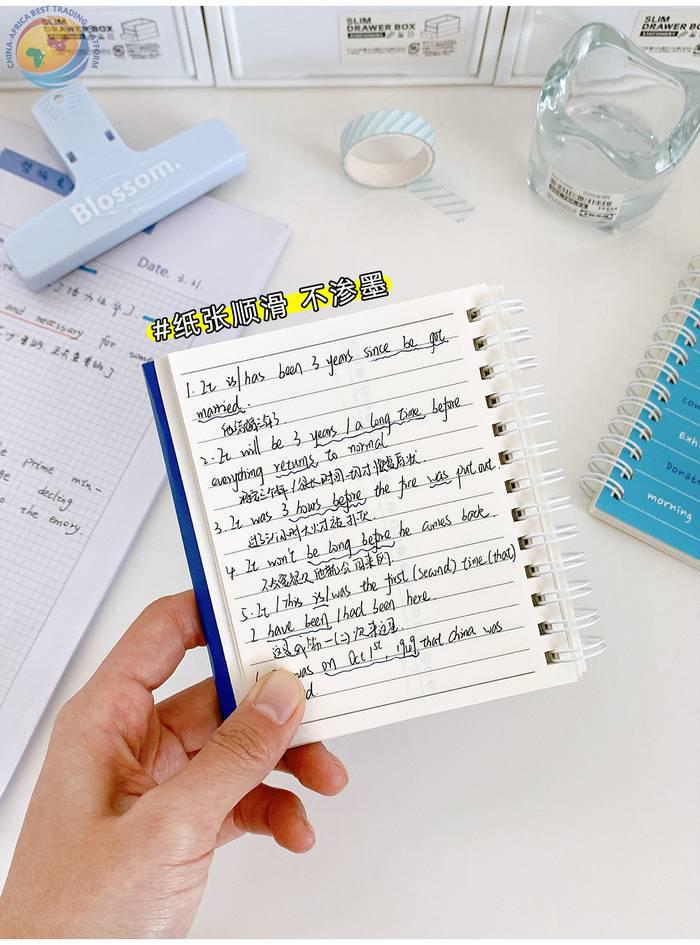 CHINA-AFRICA BEST TRADING PLATFORM
SLIM
DRAWER BOX
STATIONERY
SLIM
DRAWER BOX
STATIONERY
SLIM
DRAWER BOX
STATIONERY
Blossom.
Date.
and necessary for some
the prime min-
decling
the emory.
#纸张顺滑 不渗墨
1. It is/has been 3 years since he got
married.
他结婚三年了
2. It will be 3 years / a long time before
everything returns to normal
3. It was 3 hours before the fire was put out.
过了3小时大火才被扑灭
4. It won't be long before he comes back.
不久他就会回来的
5. It / This is/was the first (second) time (that)
I have been / had been here.
这是我第一(二)次来这里
was on Oct 1st, 1949 that China was
Exh
Donate
morning